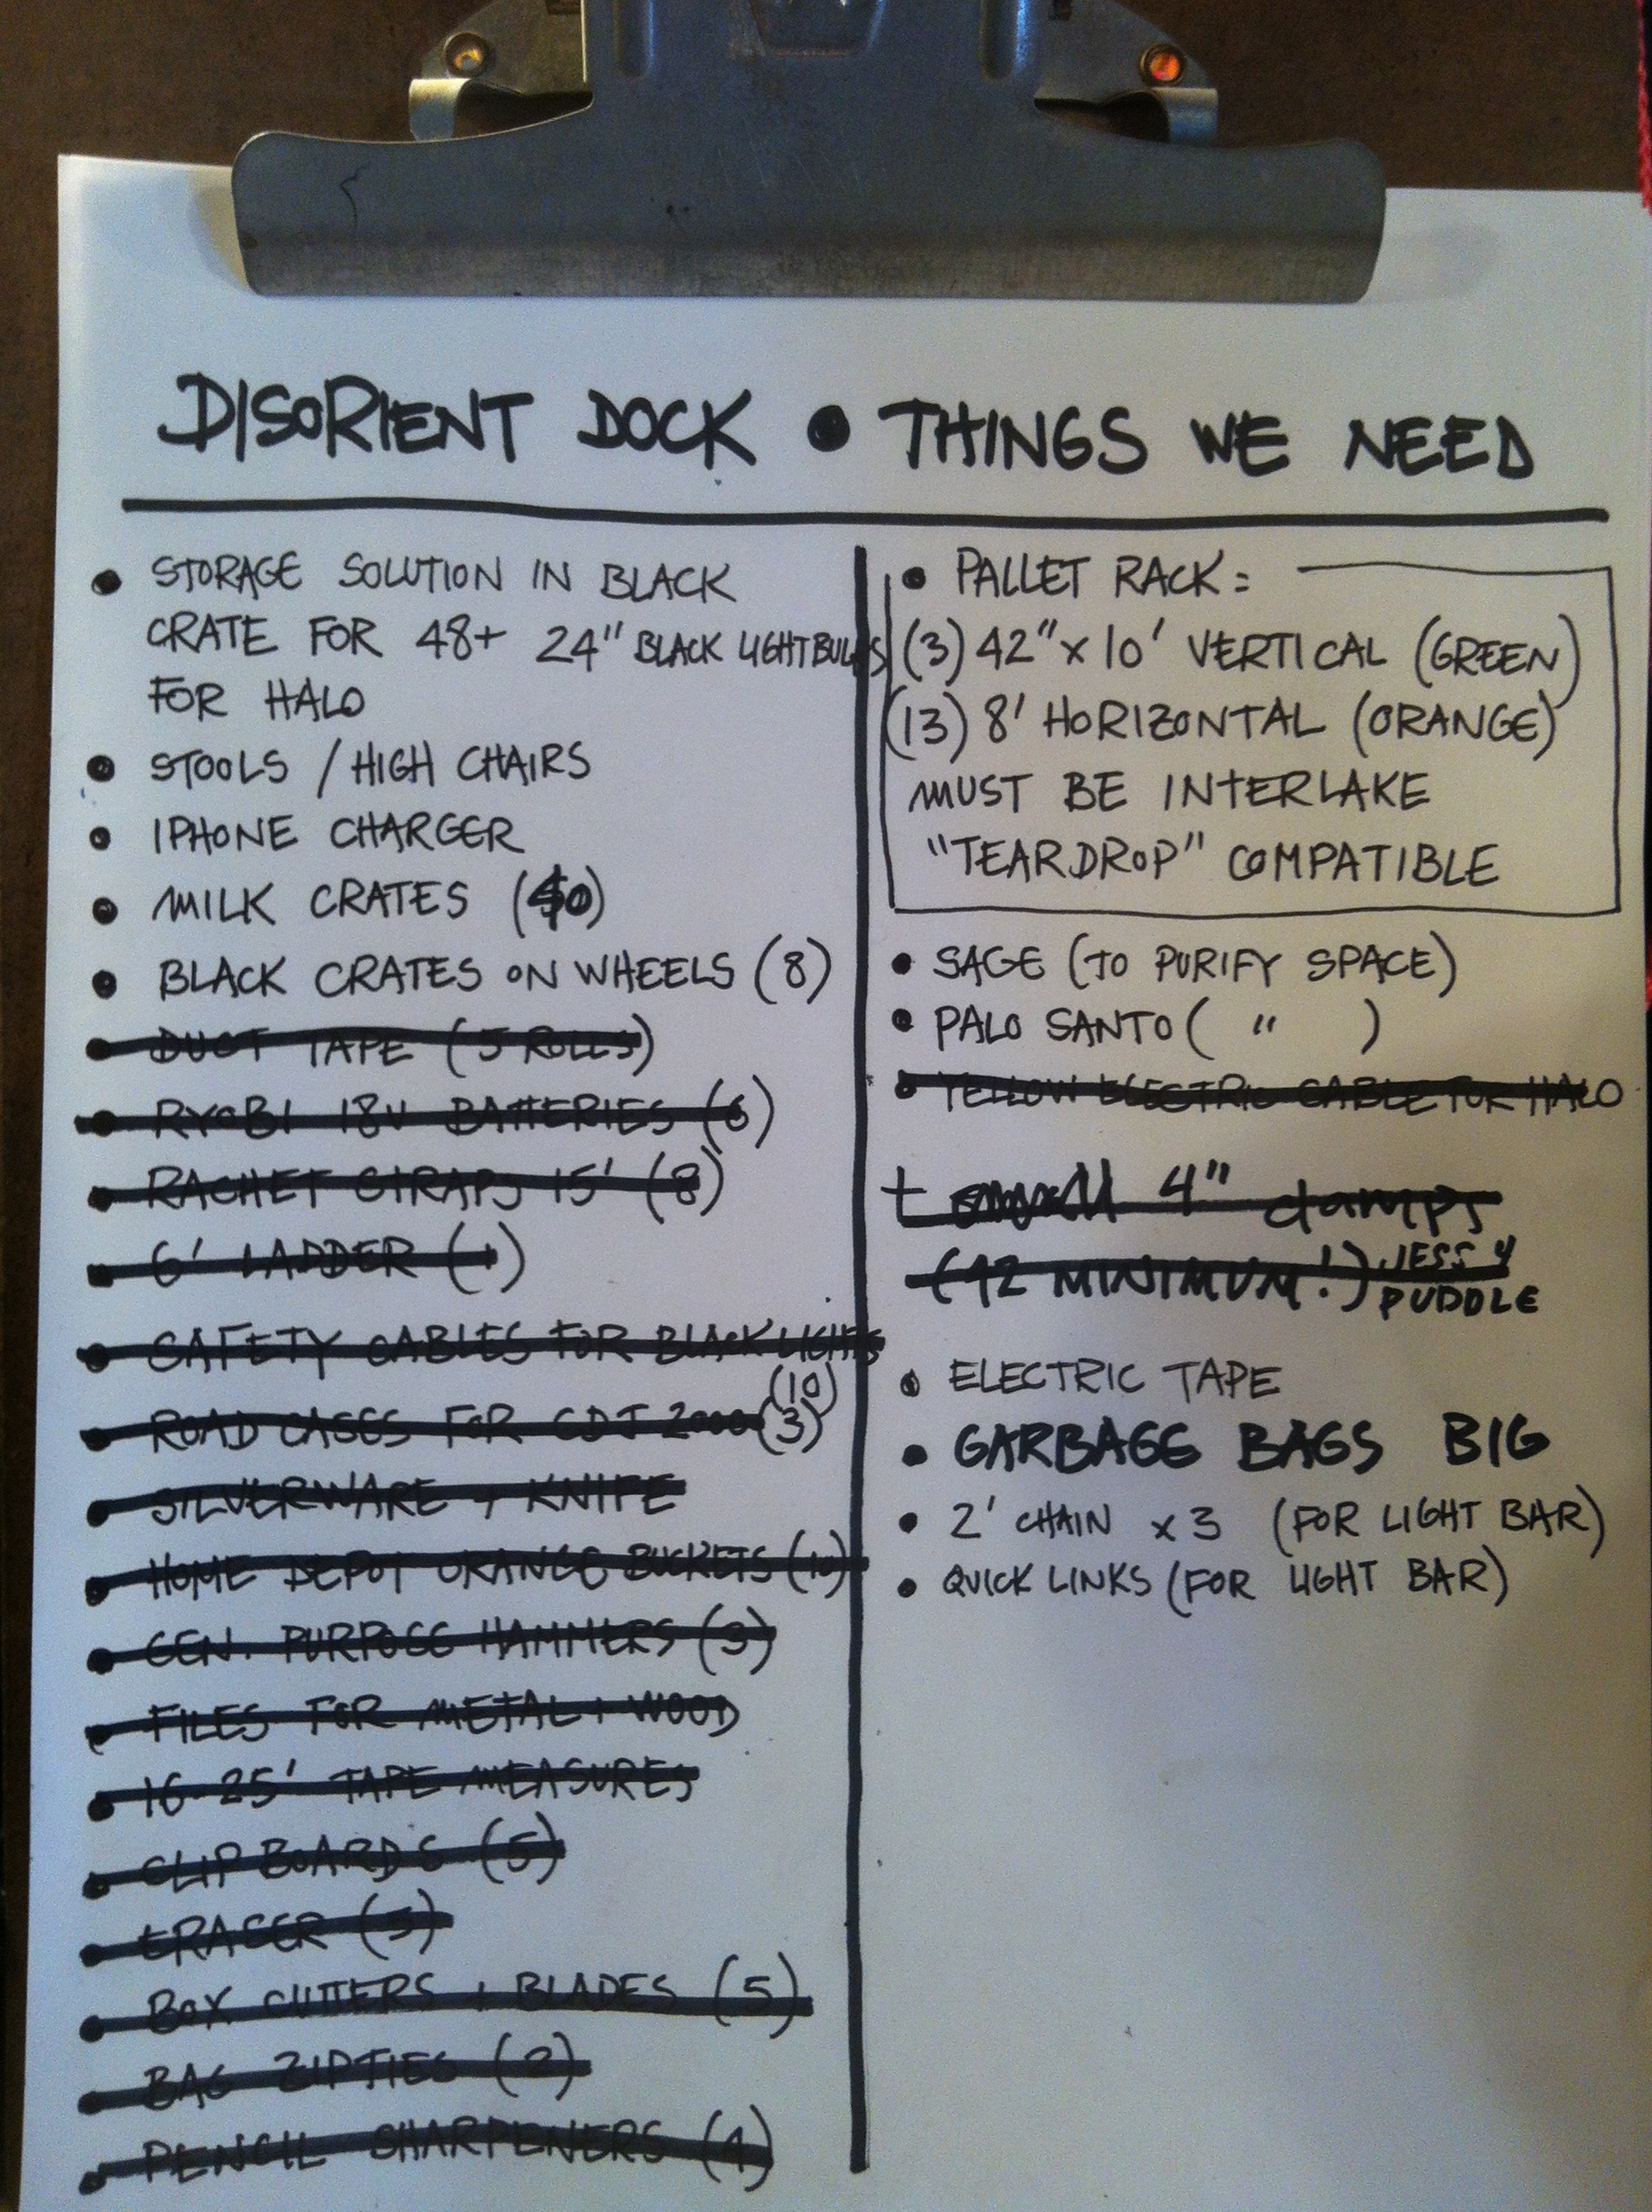 DISORIENT DOCK • THINGS WE NEED
• STORAGE SOLUTION IN BLACK
CRATE FOR 48+ 24" BLACK LIGHTBULBS
FOR HALO
• STOOLS / HIGH CHAIRS
• IPHONE CHARGER
• MILK CRATES
• BLACK CRATES ON WHEELS (8)
• DUCT TAPE (5 ROLLS)
• RYOBI 18V BATTERIES (6)
• RACHET STRAPS 15' (8)
• 6' LADDER (1)
• SAFETY CABLES FOR BLACK LIGHTS
(10)
• ROAD CASES FOR CDJ 2000 (3)
• SILVERWARE + KNIFE
• HOME DEPOT ORANGE BUCKETS (10)
• GEN. PURPOSE HAMMERS (3)
• FILES FOR METAL + WOOD
• 16-25' TAPE MEASURES
• CLIPBOARDS (5)
• ERASER (5)
• BOX CUTTERS + BLADES (5)
• BAG ZIPTIES (2)
• PENCIL SHARPENERS (4)
• PALLET RACK =
(3) 42" x 10' VERTICAL (GREEN)
(13) 8' HORIZONTAL (ORANGE)
MUST BE INTERLAKE
"TEARDROP" COMPATIBLE
• SAGE (TO PURIFY SPACE)
• PALO SANTO ( " )
• YELLOW ELECTRIC CABLE FOR HALO
+ small 4" clamps
(42 MINIMUM!) JESS Y
PUDDLE
• ELECTRIC TAPE
• GARBAGE BAGS BIG
• 2' CHAIN x 3 (FOR LIGHT BAR)
• QUICK LINKS (FOR LIGHT BAR)